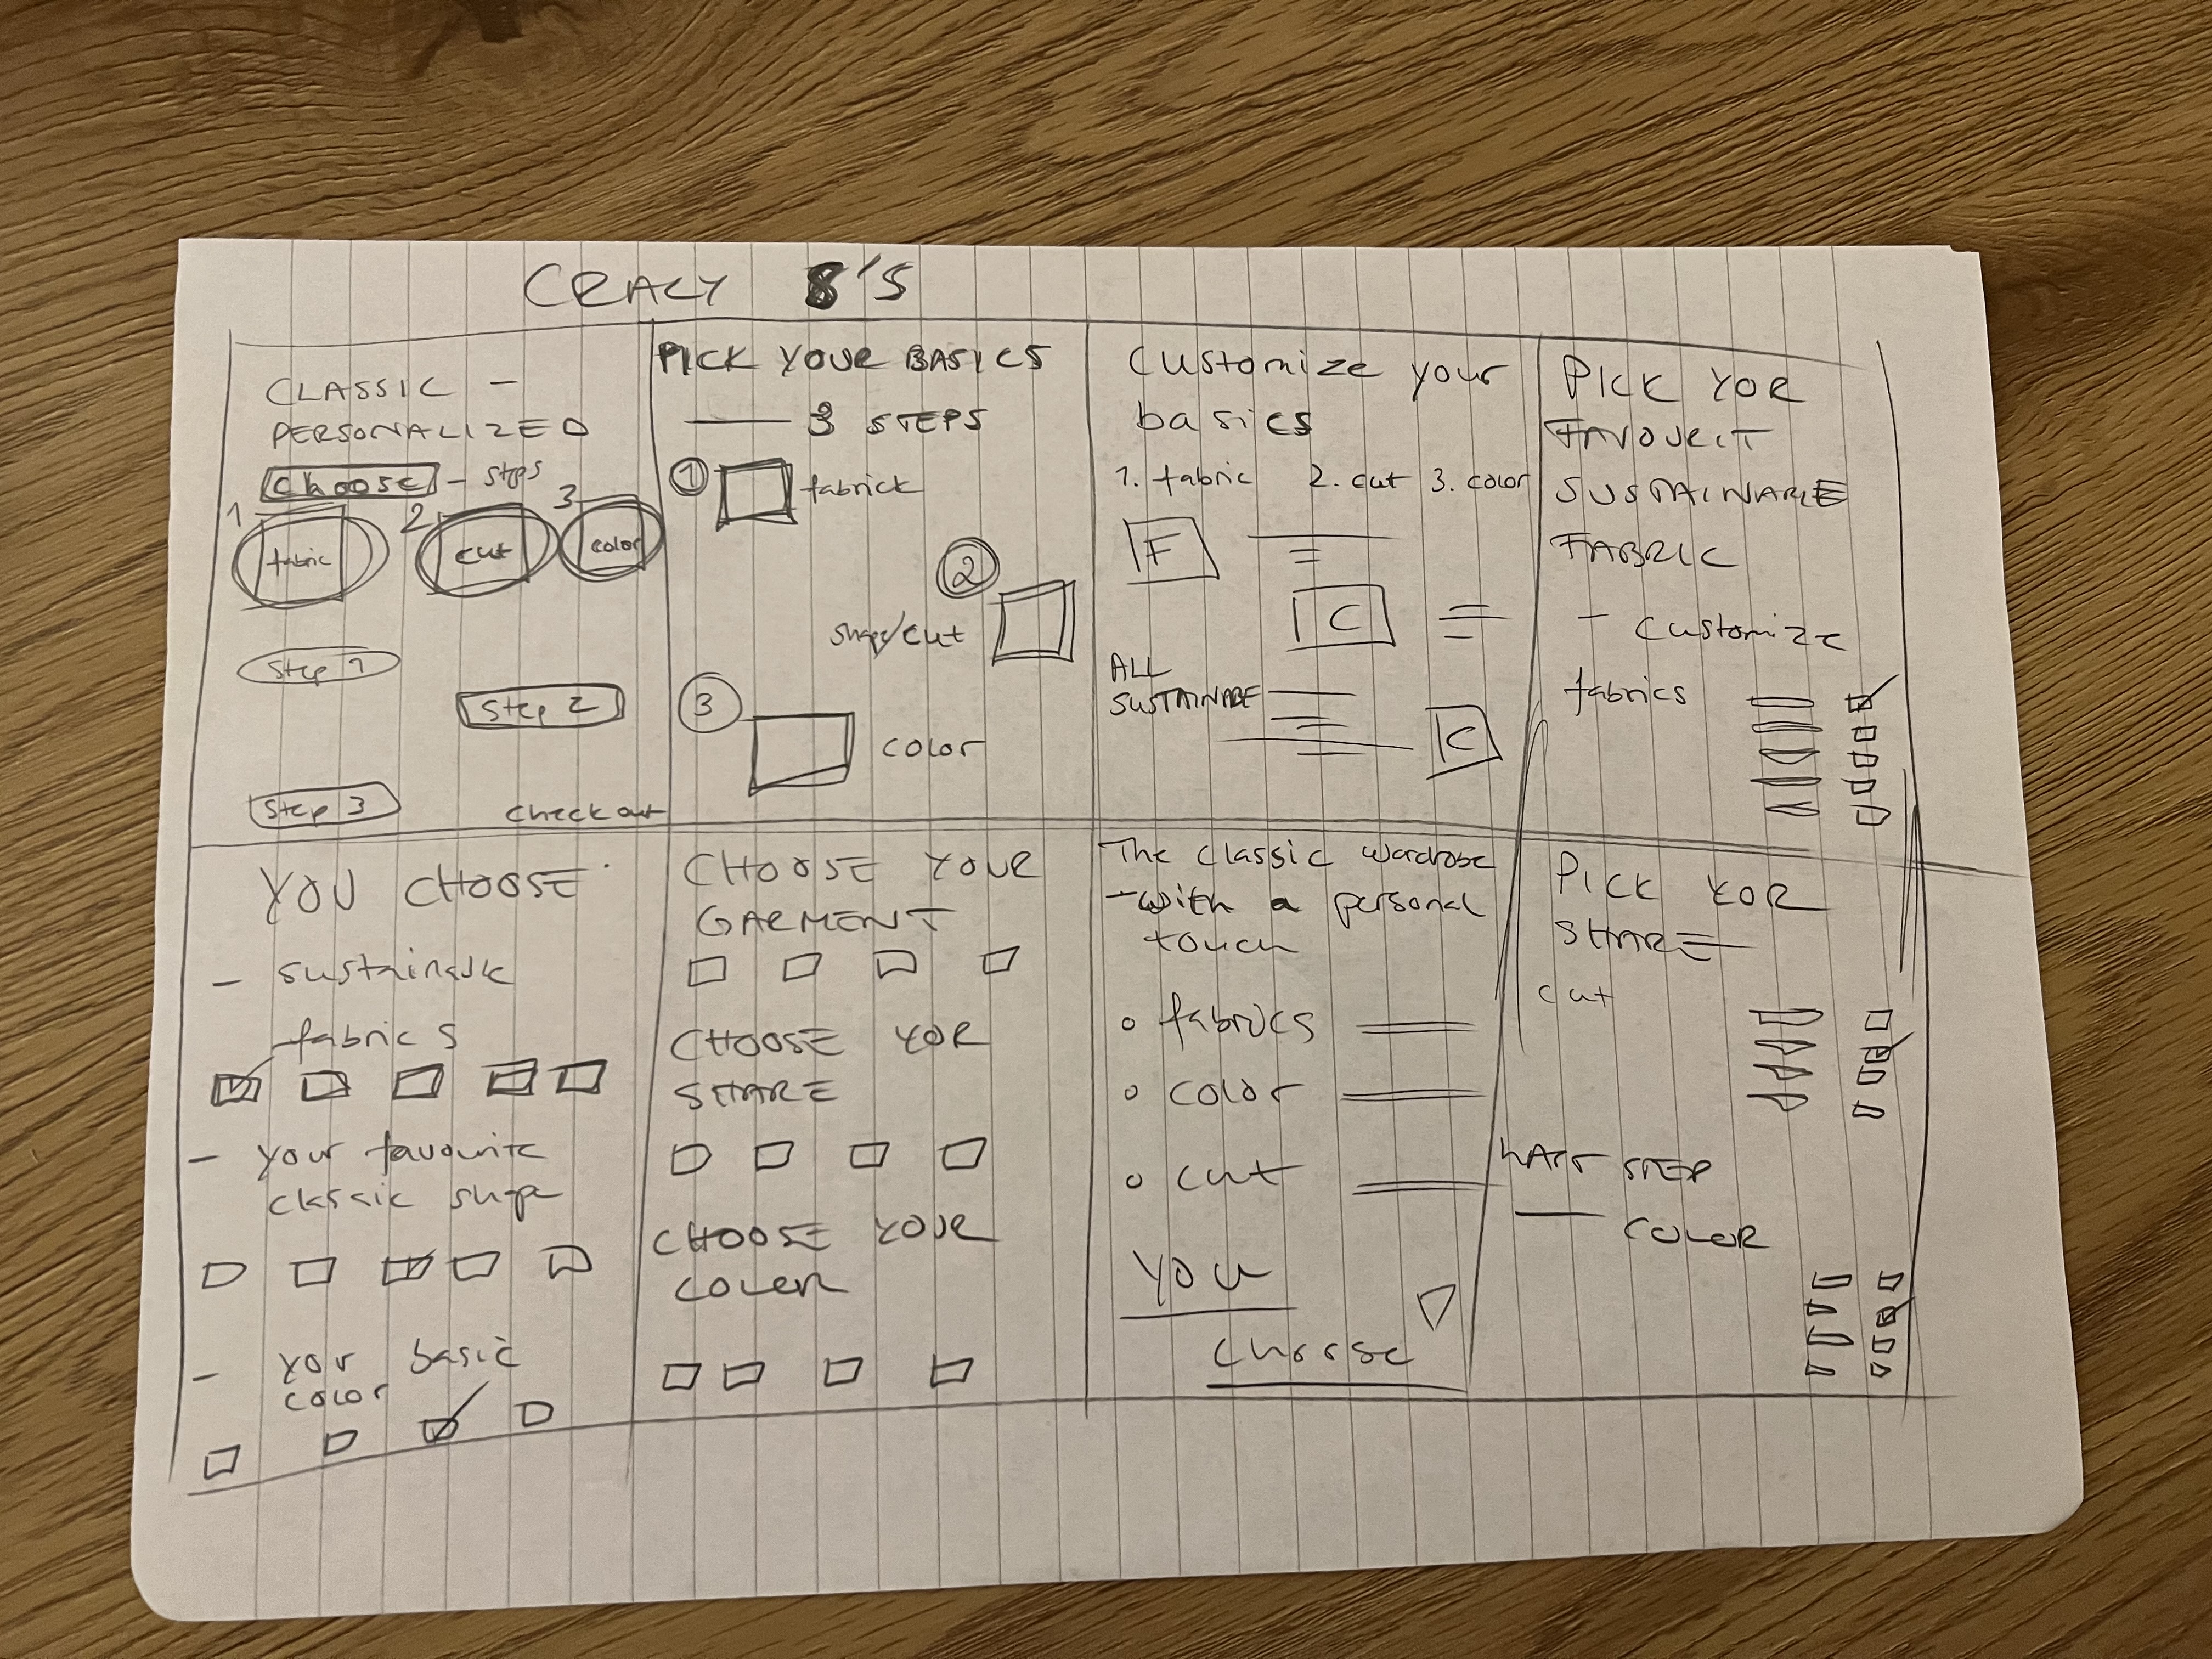 CRACY 8'S
CLASSIC -
PERSONALIZED
choose - steps
1 2 3
fabric cut color
Step 1
Step 2
Step 3
check out
PICK YOUR BASICS
3 STEPS
1 fabrick
2
shape/cut
3
color
Customize your
basics
1. fabric 2. cut 3. color
F
C
ALL
SUSTAINABE
C
PICK YOR
FAVOURIT
SUSTAINABLE
FABRIC
- customize
fabrics
YOU CHOOSE
- sustainable
fabrics
- your favourite
classic shape
- yor basic
color
CHOOSE YOUR
GARMENT
CHOOSE YOR
SHAPE
CHOOSE YOUR
COLOR
The classic wardrobe
- with a personal
touch
fabrics
color
cut
you
choose
PICK YOR
SHAPE
cut
LAST STEP
COLOR